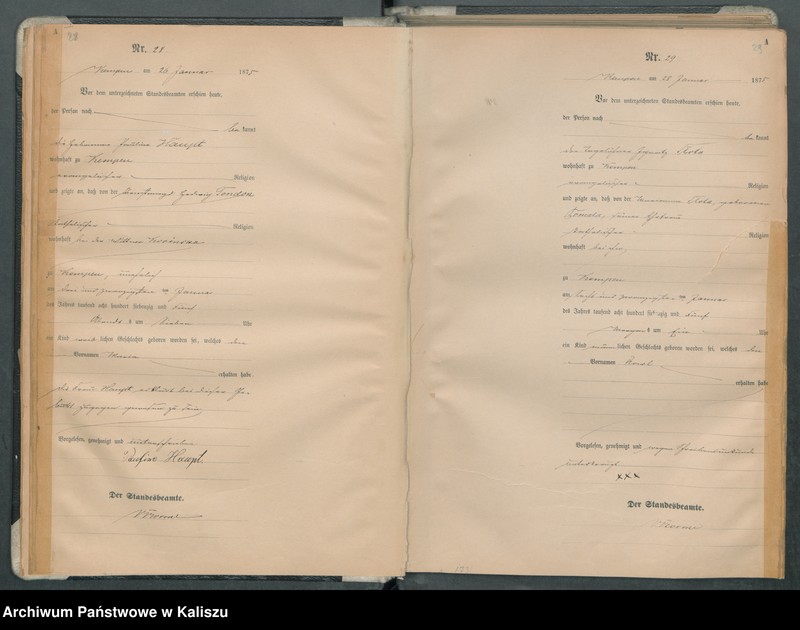 28
Nr. 28
Kempen am 26 Januar 1875
Vor dem unterzeichneten Standesbeamten erschien heute,
der Person nach
bekannt
die Hebamme Pauline Haupt
wohnhaft zu Kempen
evangelischer Religion
und zeigte an, daß von der
katholischer Religion
wohnhaft bei der Wittwe
zu Kempen, unehelich
am Januar
des Jahres tausend acht hundert siebenzig und fünf
Abends um sieben Uhr
ein Kind weiblichen Geschlechts geboren worden sei, welches den
Vornamen Maria
erhalten habe
die Frau Haupt bei dieser Ge-
burt zugegen gewesen zu sein
Vorgelesen, genehmigt und unterschrieben
Pauline Haupt.
Der Standesbeamte.
29
Nr. 29
Kempen am 28 Januar 1875
Vor dem unterzeichneten Standesbeamten erschien heute,
der Person nach
bekannt
der Tagelöhner Ignatz
wohnhaft zu Kempen
evangelischer Religion
und zeigte an, daß von der geborenen
seiner Ehefrau
katholischer Religion
wohnhaft bei ihm,
zu Kempen
am sechs und zwanzigsten Januar
des Jahres tausend acht hundert siebenzig und fünf
Morgens um fünf Uhr
ein Kind männlichen Geschlechts geboren worden sei, welches den
Vornamen
erhalten habe
Vorgelesen, genehmigt und wegen Schreibensunkunde
unterkreuzt
xxx
Der Standesbeamte.
Archiwum Państwowe w Kaliszu